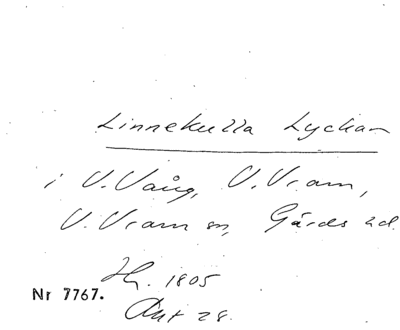 Linnekulla Lyckan
i V. Vång, V. Vram,
V. Vram sn, Gärds hd.
Hg. 1805
Akt 28.
Nr 7767.